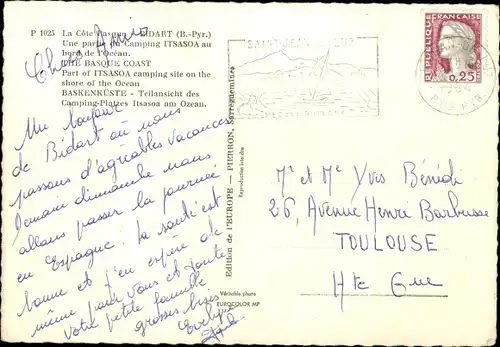 P 1025 La Côte Basque - BIDART (B.-Pyr.)
Une partie du Camping ITSASOA au
bord de l'Océan.
THE BASQUE COAST
Part of ITSASOA camping site on the
shore of the Ocean
BASKENKÜSTE - Teilansicht des
Camping-Platzes Itsasoa am Ozean.
Chers Amis
Un bonjour
de Bidart où nous
passons d'agréables vacances
demain dimanche nous
allons passer la journée
en Espagne. La santé est
bonne et j'en espère de
même pour vous et toute
votre petite famille
grosses bises
Evelyne
Edition de l'EUROPE — PIERRON, Sarreguemines
Reproduction interdite
Véritable photo
EUROCOLOR MP
SAINT-JEAN DE LUZ
REPUBLIQUE FRANÇAISE
0,25
Mr et Me Yves Bénédi
26, Avenue Henri Barbusse
TOULOUSE
Hte Gne